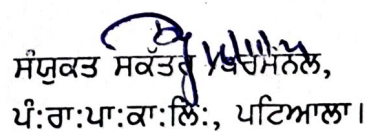 ਸੰਯੁਕਤ ਸਕੱਤਰ ਪਰਸੋਨਲ,
ਪੰ:ਰਾ:ਪਾ:ਕਾ:ਲਿ:, ਪਟਿਆਲਾ।